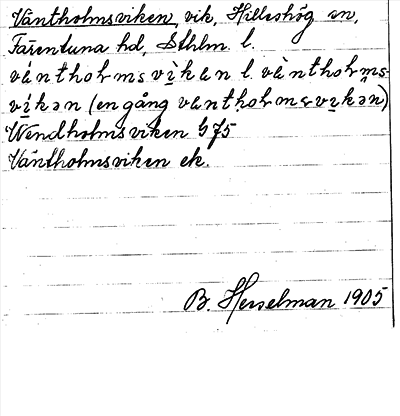 Väntholmsviken, vik, Hilleshög sn,
Färentuna hd, Sthlm l.
väntholmsvìkan l. vàntholms-
vìkən (en gång vantholmsvikən)
Wendholmsviken G75
Väntholmsviken ek.
B. Hesselman 1905